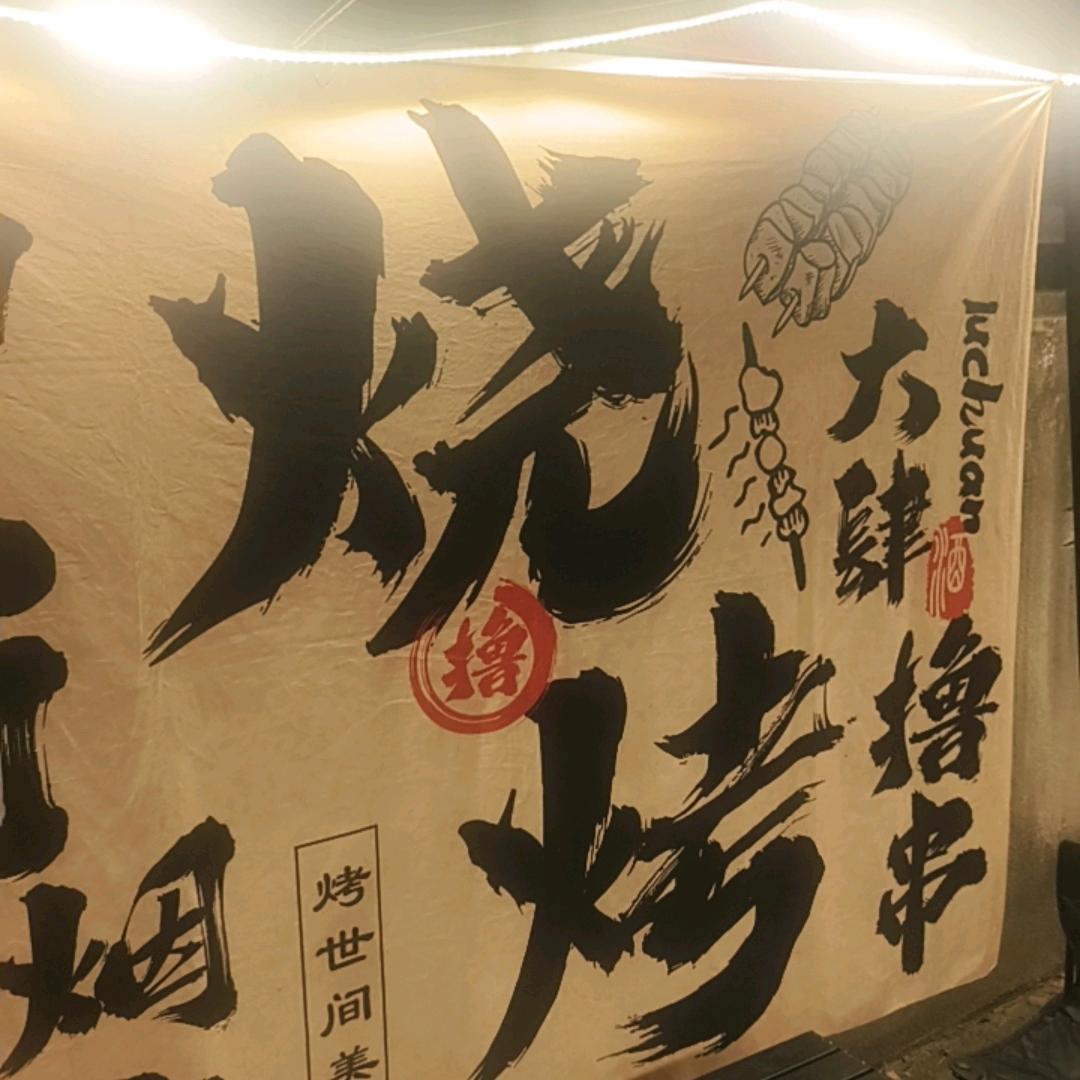 luchuan
大肆撸串
酒
烧烤
撸
烤世间美
烟